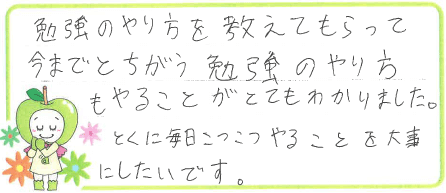 勉強のやり方を教えてもらって
今までとちがう勉強のやり方
もやることがとてもわかりました。
とくに毎日こつこつやることを大事
にしたいです。